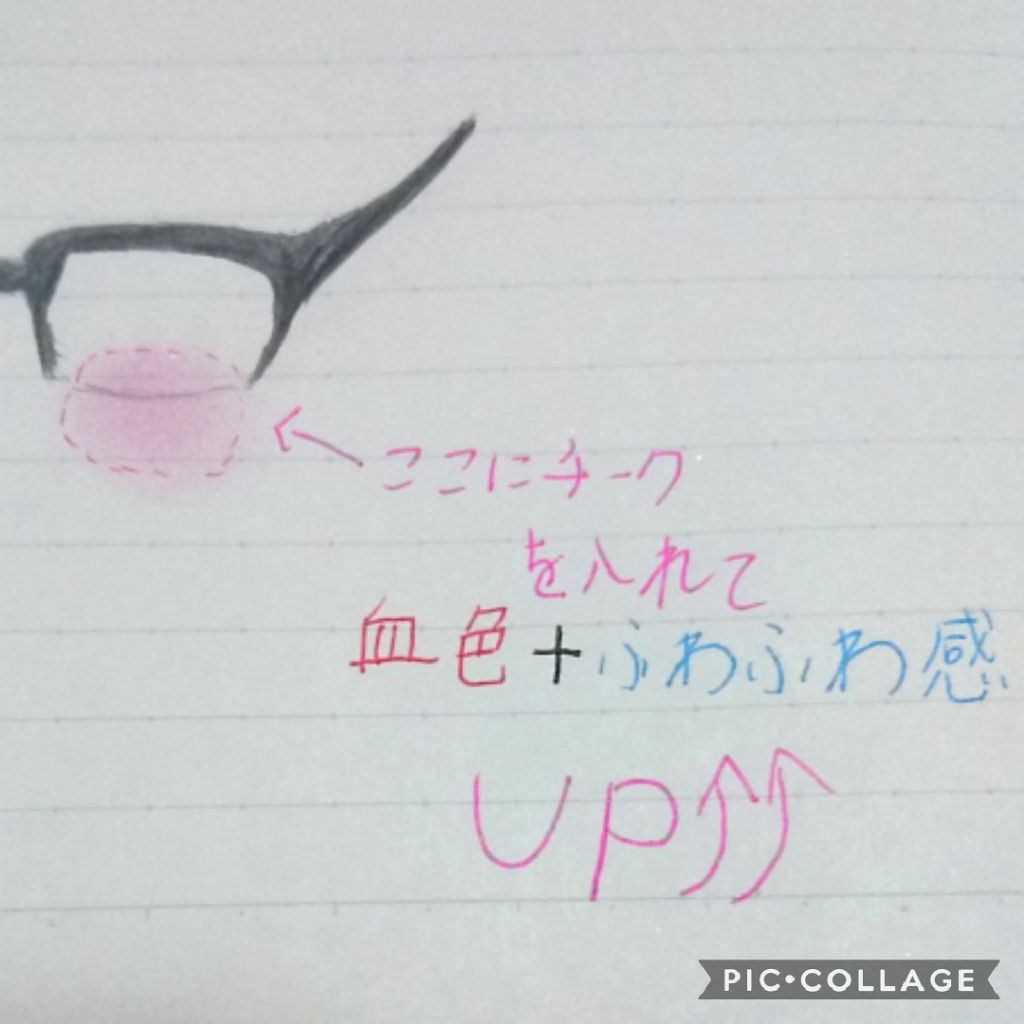 ここにチーク
を入れて
血色+ふわふわ感
UP↑↑
PIC•COLLAGE